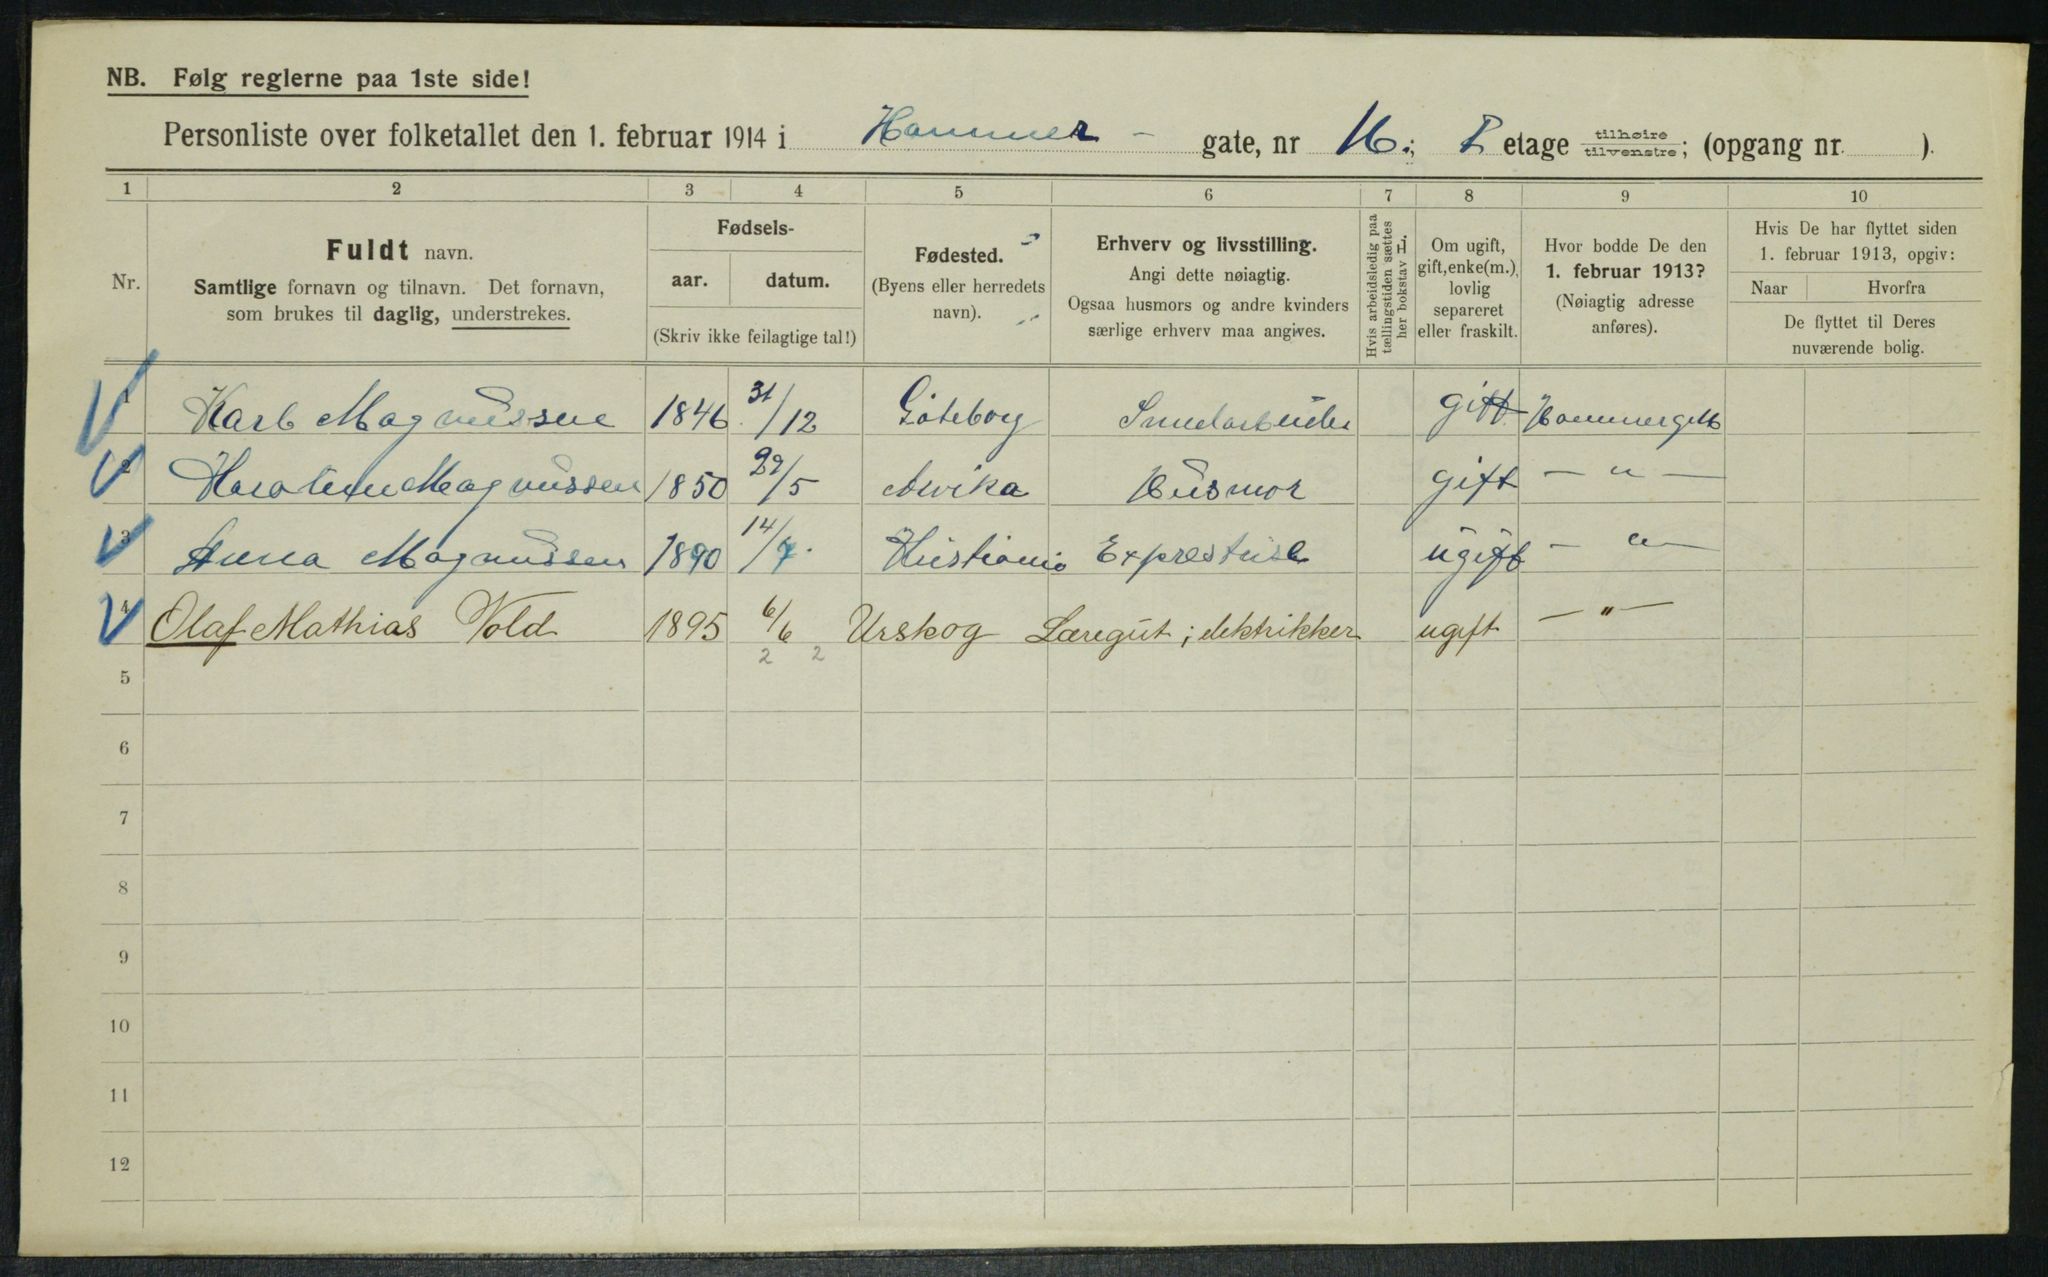 NB. Følg reglerne paa 1ste side!
Personliste over folketallet den 1. februar 1914 i Hammer - gate, nr 16.; etage tilhøire tilvenstre; (opgang nr. ).
1 2 3 4 5 6 7 8 9 10
Nr.
Fuldt navn.
Samtlige fornavn og tilnavn. Det fornavn,
som brukes til daglig, understrekes.
Fødsels-
aar. datum.
(Skriv ikke feilagtige tal!)
Fødested.
(Byens eller herredets
navn).
Erhverv og livsstilling.
Angi dette nøiagtig.
Ogsaa husmors og andre kvinders
særlige erhverv maa angives.
Hvis arbeidsledig paa
tællingstiden sættes
her bokstav L.
Om ugift,
gift, enke(m.),
lovlig
separeret
eller fraskilt.
Hvor bodde De den
1. februar 1913?
(Nøiagtig adresse
anføres).
Hvis De har flyttet siden
1. februar 1913, opgiv:
Naar Hvorfra
De flyttet til Deres
nuværende bolig.
1 Karl Magnussen 1846 31/12 Göteborg Smedarbeider gift Hammergt 16
2 Karoline Magnussen 1850 29/5 Arvika Husmor gift — " —
3 Anna Magnussen 1890 14/7. Kristiania ugift — " —
4 Olaf Mathias Vold 1895 6/6 Urskog Læregut; elektrikker ugift — " —
2 2
5
6
7
8
9
10
11
12